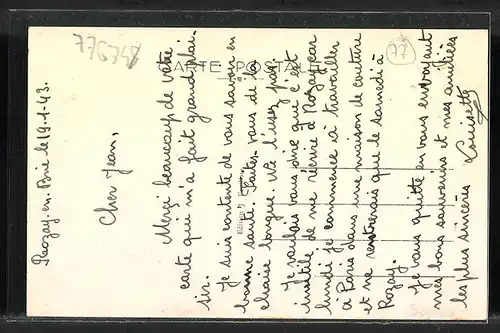 776748
77
CARTE POSTALE
Rozay-en-Brie le 19-1-43.
Cher Jean,
Merci beaucoup de votre
carte qui m'a fait grand plai-
sir.
Je suis contente de vous savoir en
bonne santé. Faites-vous de la
chaise longue. Ne l'usez pas.
Je voulais vous dire que c'est
inutile de me réécrire à Rozay car
lundi je commence à travailler
à Paris dans une maison de couture
et ne rentrerais que le samedi à
Rozay.
Je vous quitte en vous envoyant
mes bons souvenirs et mes amitiés
les plus sincères
Louisette